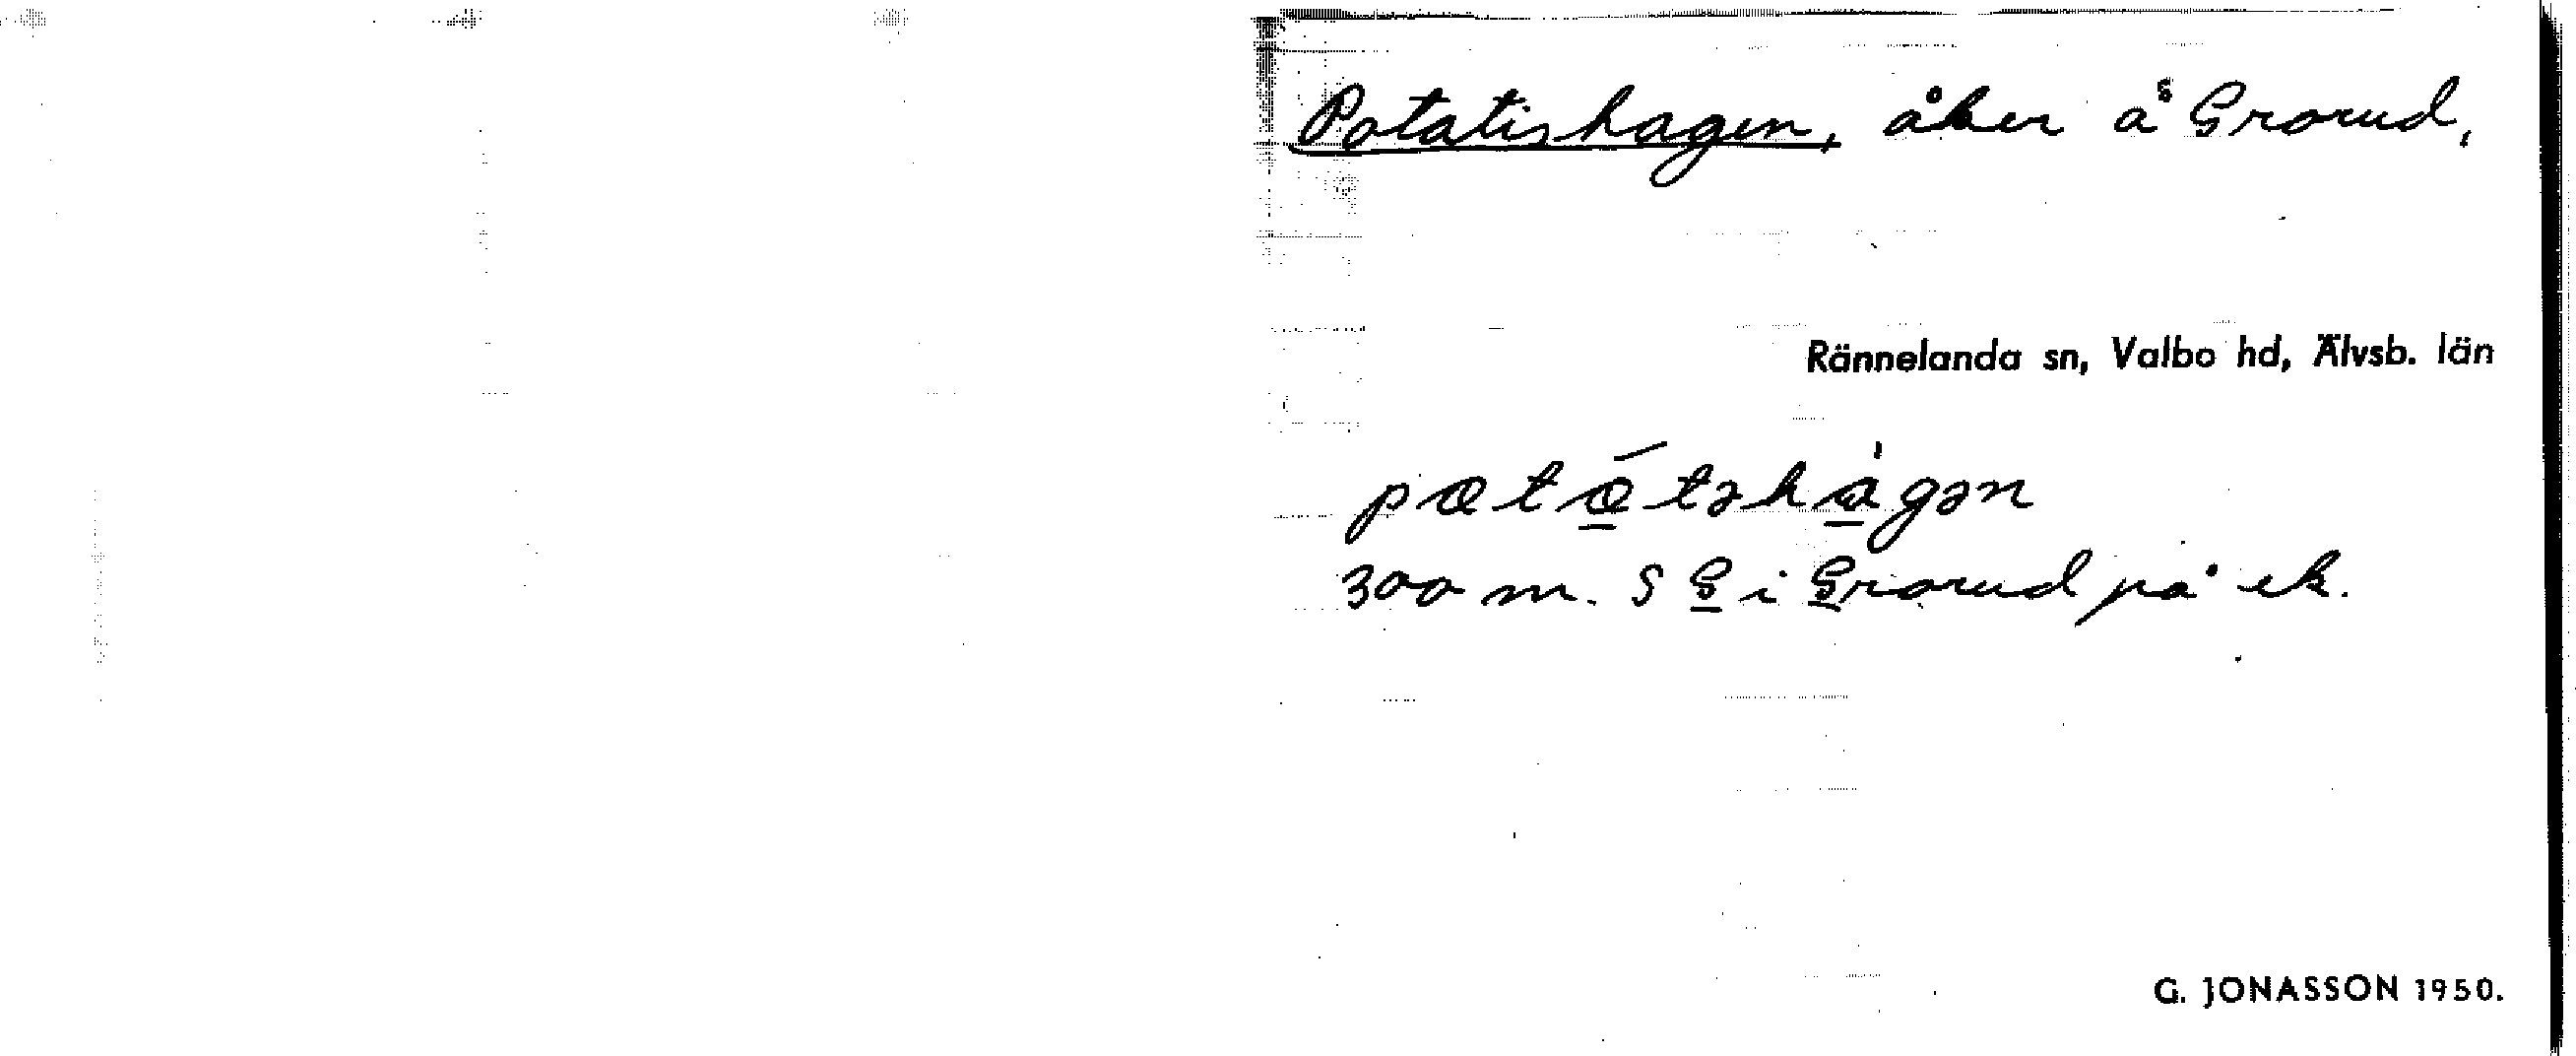 Potatishagen, åker å Grorud,
Rännelanda sn, Valbo hd, Älvsb. län
300 m. S G i Grorud på ek.
G. JONASSON 1950.